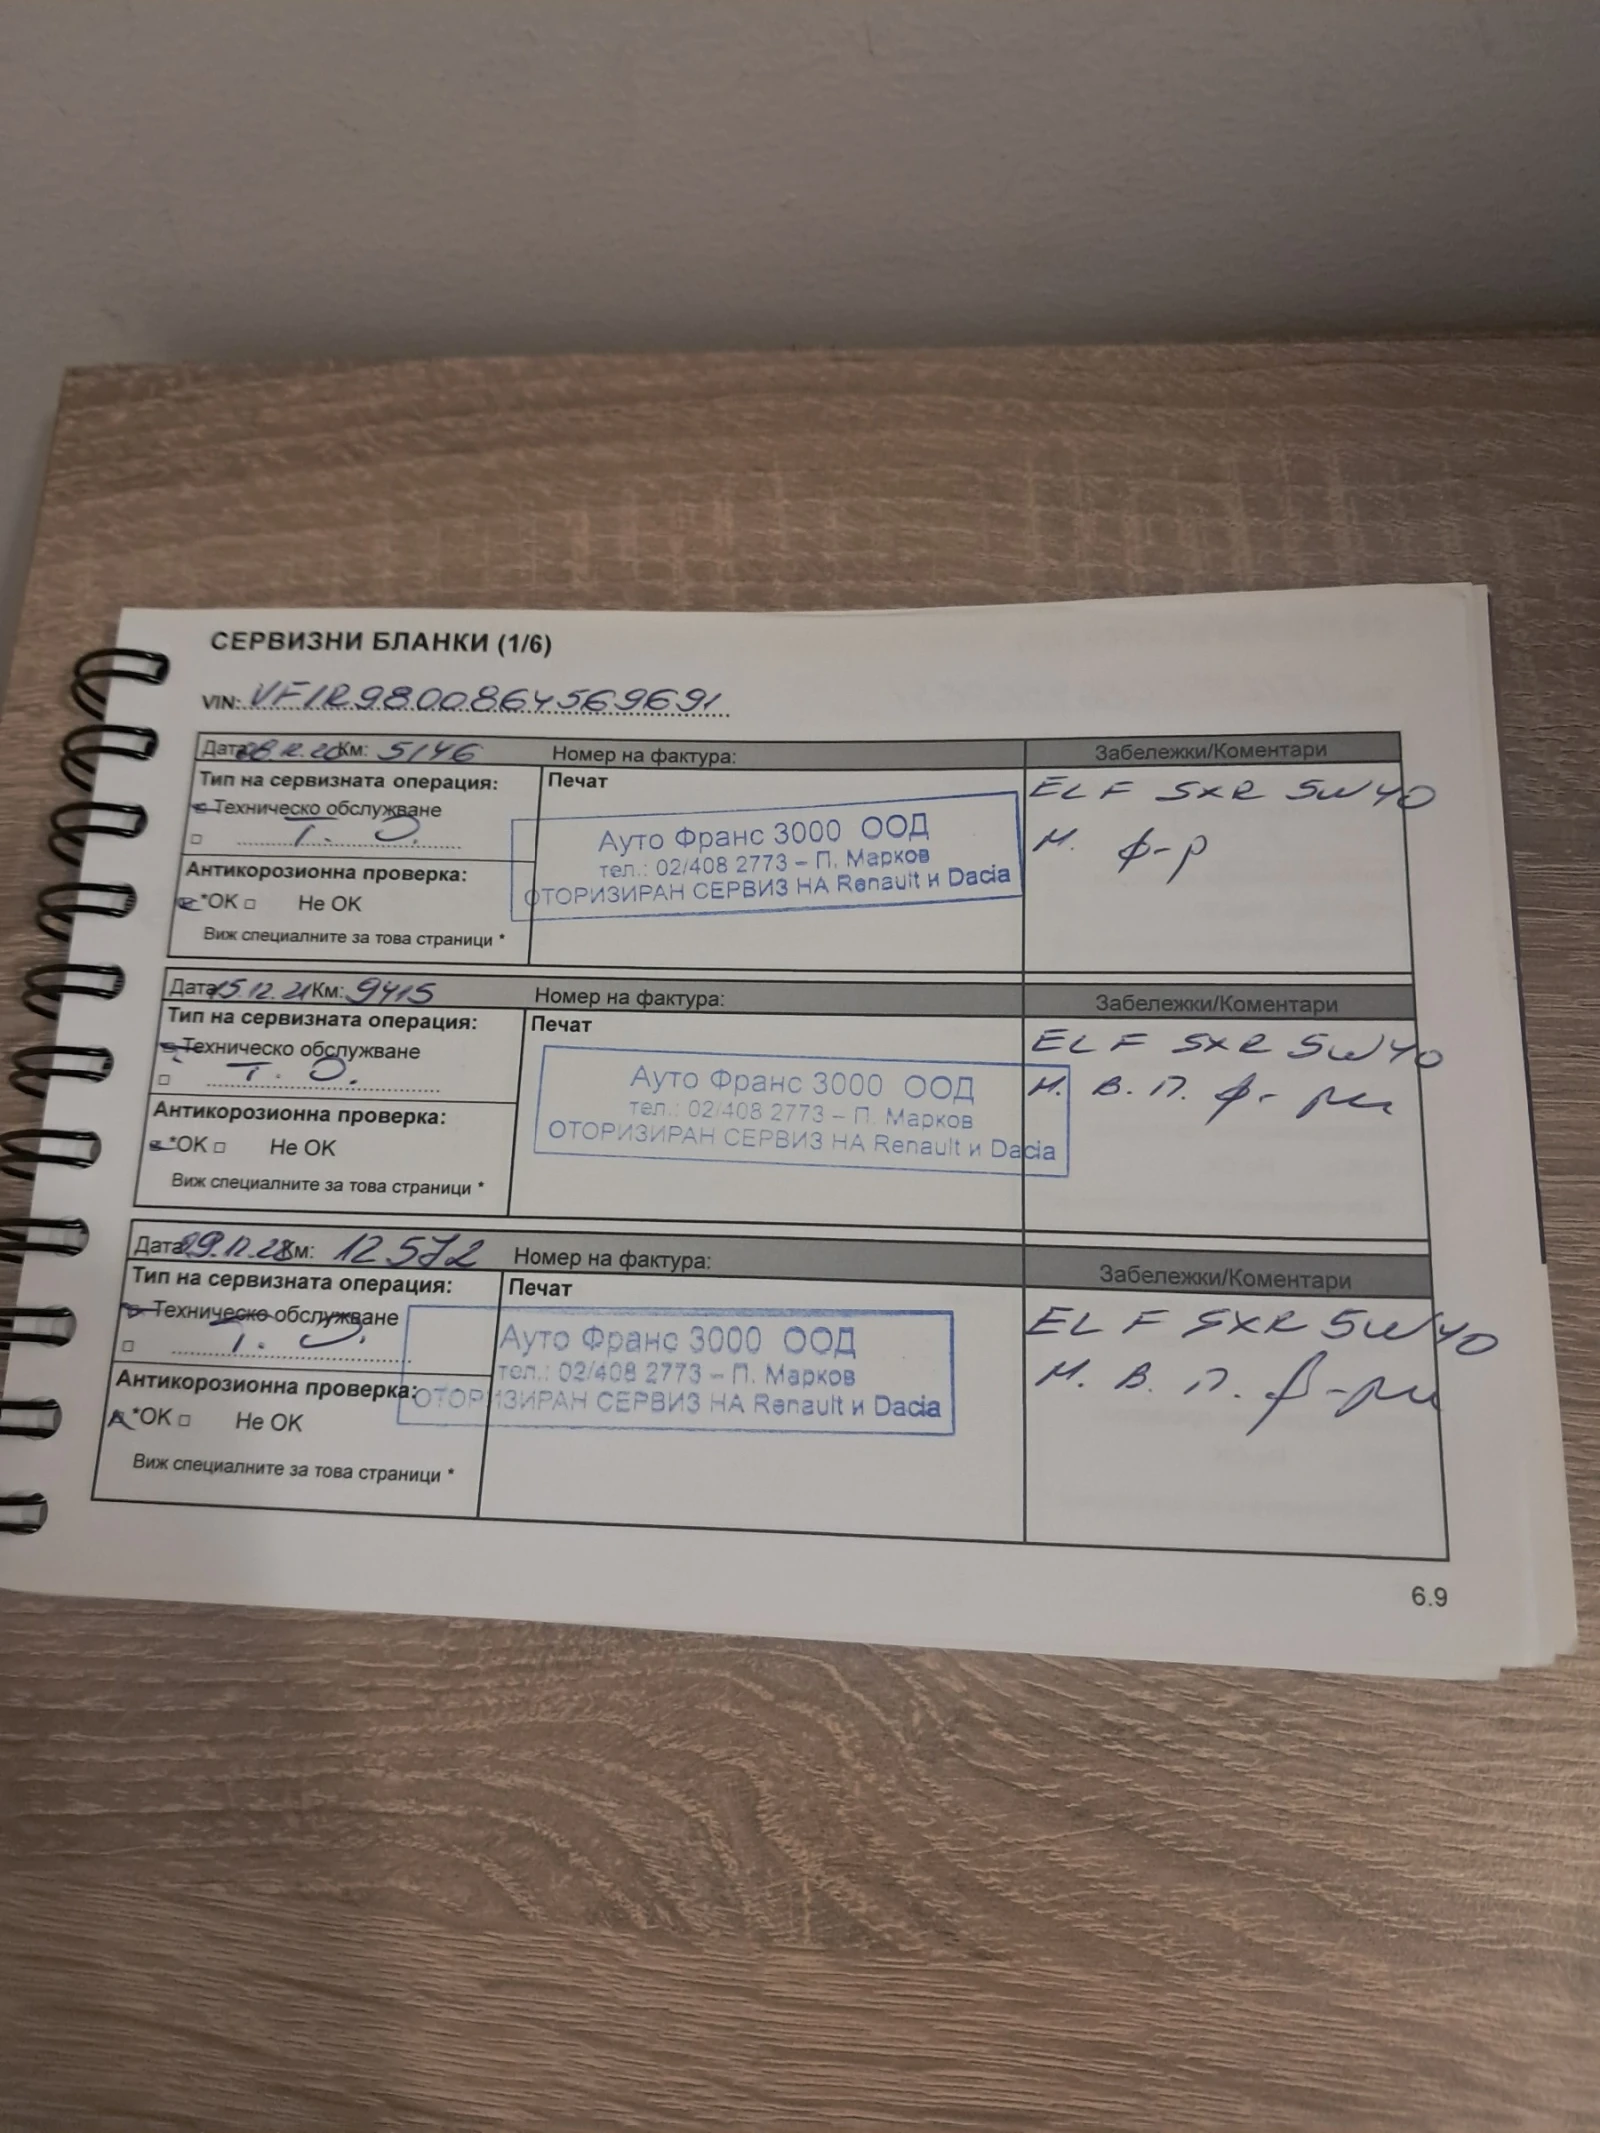 СЕРВИЗНИ БЛАНКИ (1/6)
VIN: VF1R9800864569691
Дата 08.12.20 Км: 5146 Номер на фактура: Забележки/Коментари
Тип на сервизната операция: Печат ELF SXR 5W40
Техническо обслужване М. ф-р
Т. О.
Ауто Франс 3000 ООД
тел.: 02/408 2773 – П. Марков
ОТОРИЗИРАН СЕРВИЗ НА Renault и Dacia
Антикорозионна проверка:
*OK □ Не OK
Виж специалните за това страници *
Дата 15.12.21 Км: 9415 Номер на фактура: Забележки/Коментари
Тип на сервизната операция: Печат ELF SXR 5W40
Техническо обслужване М. В. П. ф-ри
Т. О.
Ауто Франс 3000 ООД
тел.: 02/408 2773 – П. Марков
ОТОРИЗИРАН СЕРВИЗ НА Renault и Dacia
Антикорозионна проверка:
*OK □ Не OK
Виж специалните за това страници *
Дата Км: 12572 Номер на фактура: Забележки/Коментари
Тип на сервизната операция: Печат ELF SXR 5W40
Техническо обслужване М. В. П. ф-ри
Т. О.
Ауто Франс 3000 ООД
тел.: 02/408 2773 – П. Марков
ОТОРИЗИРАН СЕРВИЗ НА Renault и Dacia
Антикорозионна проверка:
*OK □ Не OK
Виж специалните за това страници *
6.9